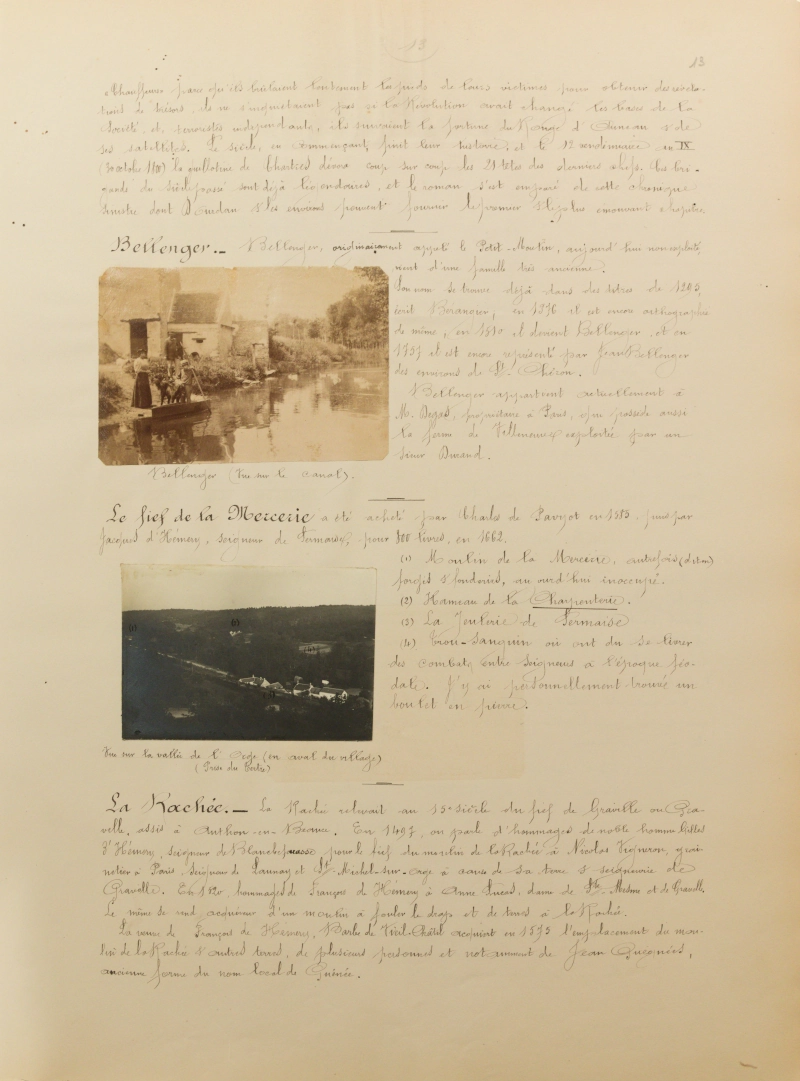 13
Chauffeurs parce qu'ils brûlaient lentement les pieds de leurs victimes pour obtenir des révéla-
tions de trésors, ils ne s'inquiétaient pas que la Révolution avait changé les bases de la
Société et, terroristes indépendants, ils suivaient la fortune du Rouge d'Auneau & de
ses satellites. Le siècle, en commençant, finit leur histoire; et le 12 vendémiaire an IX
(30 octobre 1800) la guillotine de Chartres dévora coup sur coup les 21 têtes des derniers chefs. Ces bri-
gands du siècle passé sont déjà légendaires, et le roman s'est emparé de cette chronique
sinistre dont Dourdan & ses environs peuvent fournir le premier & le plus émouvant chapitre.
Bellenger._ Bellenger, originairement appelé le Petit-Moulin, aujourd'hui non exploité,
vient d'une famille très ancienne.
Son nom se trouve déjà dans des titres de 1203
écrit Berangier, en 1276 il est encore orthographié
de même, en 1510 il devient Bellengier, et en
1737 il est encore représenté par Jean Bellenger
des environs de St Chéron.
Bellenger appartient actuellement à
M. Degas, propriétaire à Paris, qui possède aussi
la ferme de Villeneuve exploitée par un
sieur Durand.
Bellenger (Vue sur le canal).
Le fief de la Mercerie a été acheté par Charles de Paviot en 1583 puis par
Jacques d'Hémery, seigneur de Sermaise, pour 800 livres, en 1662.
(1) Moulin de la Mercerie, autrefois (dit-on)
forges & fonderies, aujourd'hui inoccupé.
(2) Hameau de la Charpenterie.
(3) La Jeulerie de Sermaise
(4) Trou-Sanguin où ont dû se livrer
des combats entre seigneurs à l'époque féo-
dale. J'y ai personnellement trouvé un
boulet en pierre.
Vue sur la vallée de l'Orge (en aval du village)
(Prise du Tertre)
La Rachée._ La Rachée relevait au 15e siècle du fief de Graville ou Gra-
velle, assis à Authon-en-Beauce. En 1497, on parle d'hommages de noble homme Gilles
d'Hémery, seigneur de Blanchefouasse pour le fief du moulin de la Rachée à Nicolas Vigneron, grai-
netier à Paris, seigneur de Launay et St-Michel-sur-Orge à cause de sa terre & seigneurie de
Gravelle. En 1520, hommages de François de Hémery à Anne Lucas, dame de Ste Mesme et de Gravelle.
Le même se rend acquéreur d'un moulin à fouler le drap et de terres à la Rachée.
La veuve de François de Hémery, Barbe de Vieil-Châtel acquiert en 1575 l'emplacement du mou-
lin de la Rachée & autres terres, de plusieurs personnes et notamment de Jean
ancienne forme du nom local de Guénée.